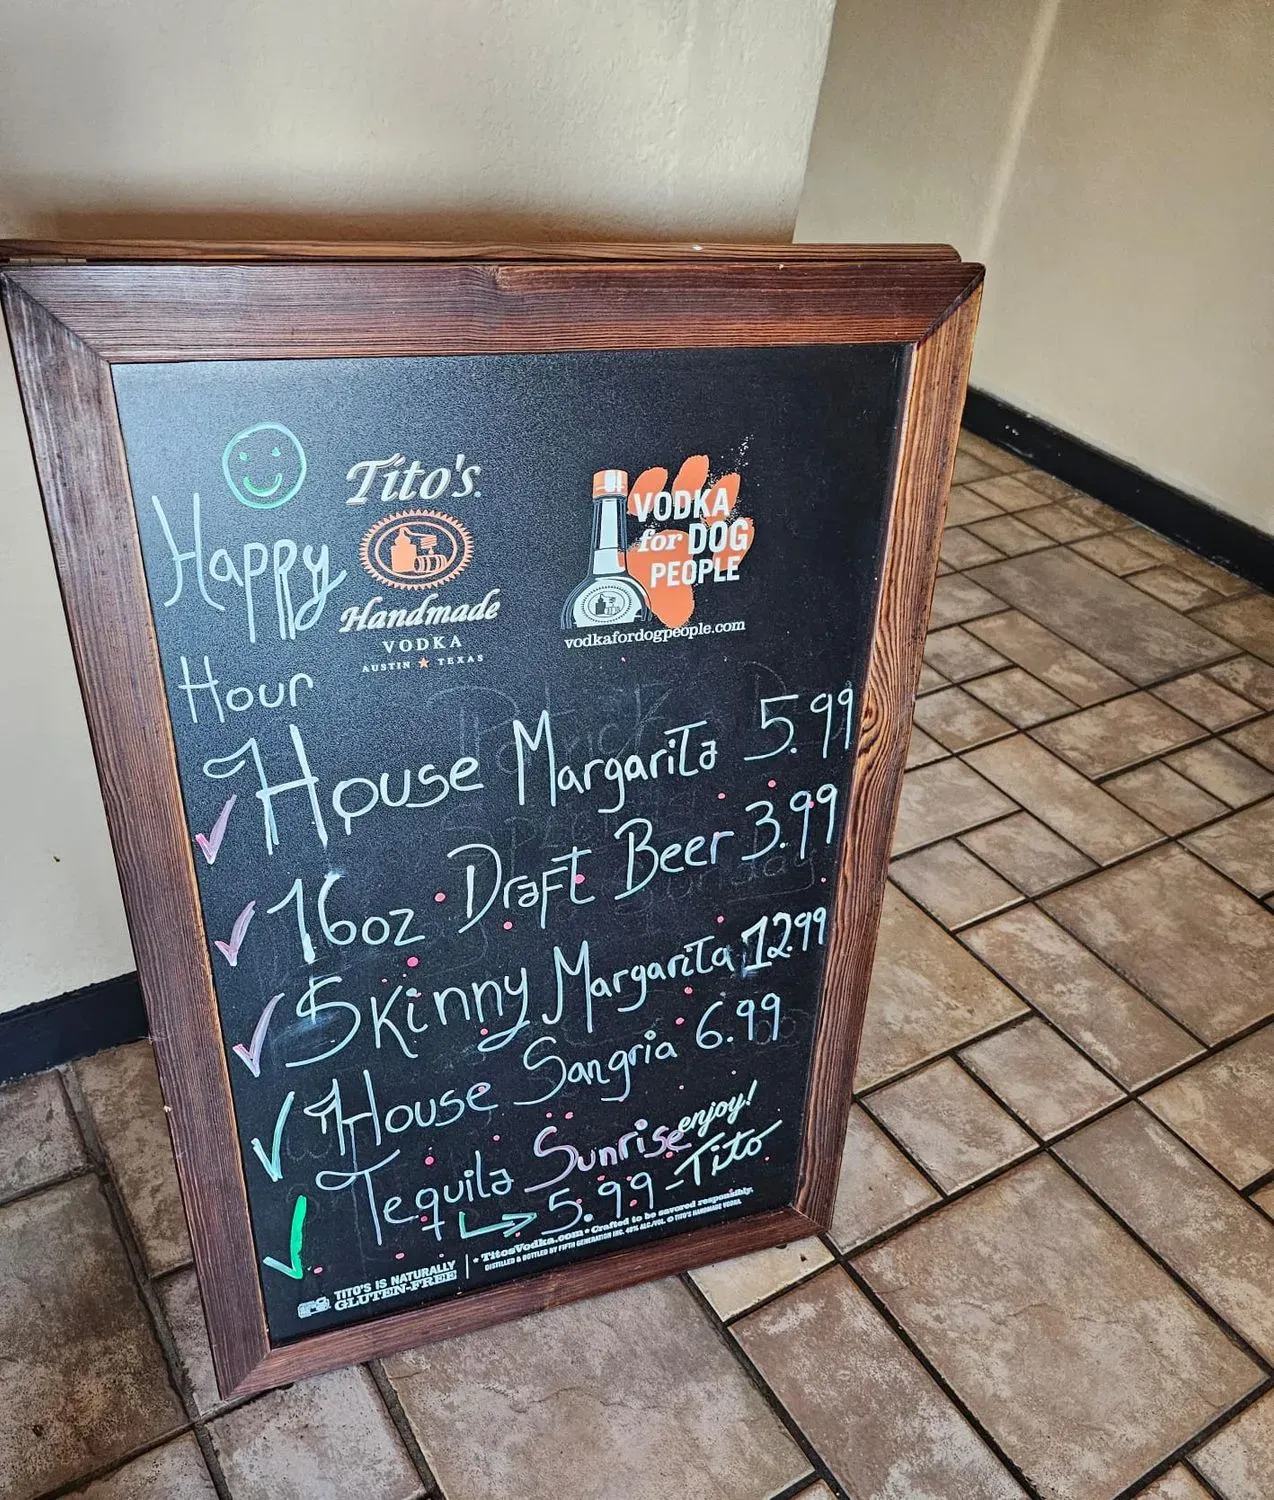 Tito's
Handmade
VODKA
AUSTIN ★ TEXAS
VODKA
for DOG
PEOPLE
vodkafordogpeople.com
Happy
Hour
House Margarita 5.99
16oz Draft Beer 3.99
Skinny Margarita 12.99
House Sangria 6.99
Tequila Sunrise
5.99
enjoy!
-Tito
TITO'S IS NATURALLY
GLUTEN-FREE
* TitosVodka.com * Crafted to be savored responsibly.
DISTILLED & BOTTLED BY FIFTH GENERATION INC. 40% ALC./VOL. © TITO'S HANDMADE VODKA.